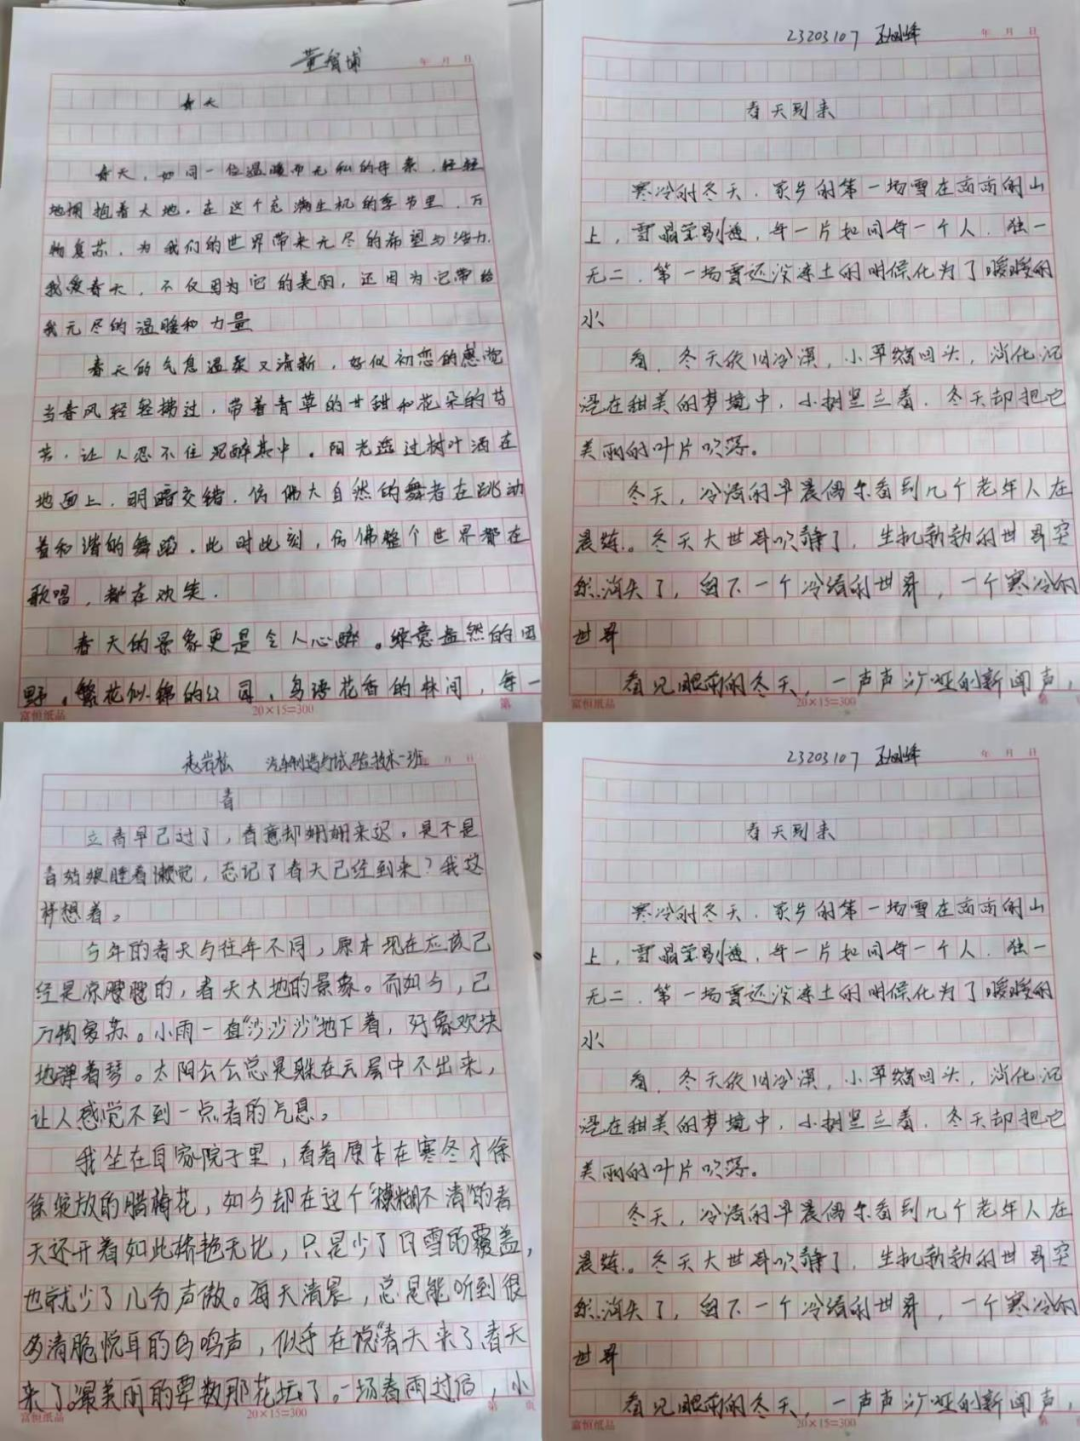 年 月 日
春天
春天，如同一位温暖而无私的母亲，轻轻
地拥抱着大地。在这个充满生机的季节里，万
物复苏，为我们的世界带来无尽的希望与活力.
我爱春天，不仅因为它的美丽，还因为它带给
我无尽的温暖和力量
春天的气息温柔又清新，好似初恋的感觉
当春风轻轻拂过，带着青草的甘甜和花朵的芬
芳，让人忍不住沉醉其中。阳光透过树叶洒在
地面上，明暗交错，仿佛大自然的舞者在跳动
着和谐的舞蹈。此时此刻，仿佛整个世界都在
歌唱，都在欢笑.
春天的景象更是令人心醉。绿意盎然的田
野，繁花似锦的公园，鸟语花香的林间，每一
富恒纸品 20×15=300 第
23203107 年 月 日
春天到来
寒冷的冬天，家乡的第一场雪在高高的山
上，雪晶莹剔透，每一片如同每一个人，独一
无二，第一场雪还没冻土的时候化为了暖暖的
水
看，冬天依旧冷漠，小草缩回头，消化沉
浸在甜美的梦境中，小树竖立着，冬天却把它
美丽的叶片吹落。
冬天，冷清的早晨偶尔看到几个老年人在
晨练。冬天大世界吹静了，生机勃勃的世界突
然消失了，留下一个冷清的世界，一个寒冷的
世界
看见眼前的冬天，一声声沙哑的新闻声，
富恒纸品 20×15=300 第
汽车制造与试验技术一班 月 日
春
立春早已过了，春意却姗姗来迟。是不是
春姑娘睡着懒觉，忘记了春天已经到来？我这
样想着。
今年的春天与往年不同，原本现在应该已
经是凉飕飕的，春天大地的景象。而如今，已
万物复苏。小雨一直“沙沙沙”地下着，好象欢快
地弹着琴。太阳公公总是躲在云层中不出来，
让人感觉不到一点春的气息。
我坐在自家院子里，看着原本在寒冬才徐
徐绽放的腊梅花，如今却在这个“模糊不清”的春
天还开着如此娇艳无比，只是少了白雪的覆盖，
也就少了几分声傲。每天清晨，总是能听到很
多清脆悦耳的鸟鸣声，似乎在说“春天来了春天
来了。最美丽的要数那花坛了。一场春雨过后，小
富恒纸品 20×15=300 第 页
23203107 年 月 日
春天到来
寒冷的冬天，家乡的第一场雪在高高的山
上，雪晶莹剔透，每一片如同每一个人，独一
无二，第一场雪还没冻土的时候化为了暖暖的
水
看，冬天依旧冷漠，小草缩回头，消化沉
浸在甜美的梦境中，小树竖立着，冬天却把它
美丽的叶片吹落。
冬天，冷清的早晨偶尔看到几个老年人在
晨练。冬天大世界吹静了，生机勃勃的世界突
然消失了，留下一个冷清的世界，一个寒冷的
世界
看见眼前的冬天，一声声沙哑的新闻声，
富恒纸品 20×15=300 第